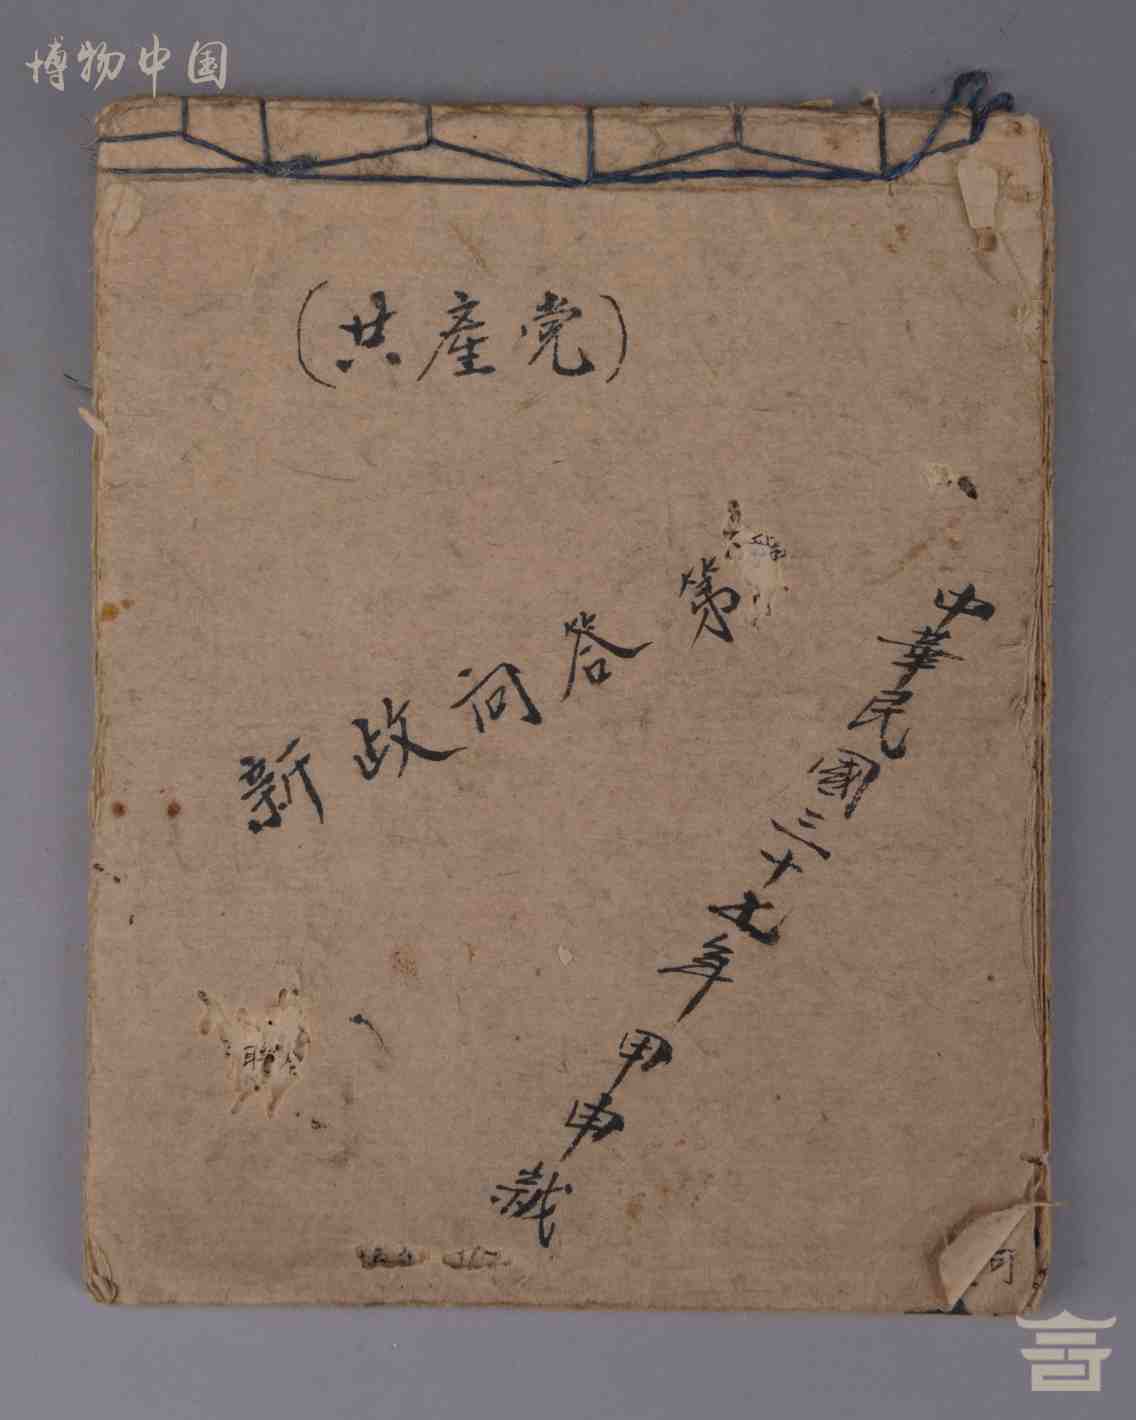 博物中国
(共產党)
新政问答第
中華民國三十七年甲申